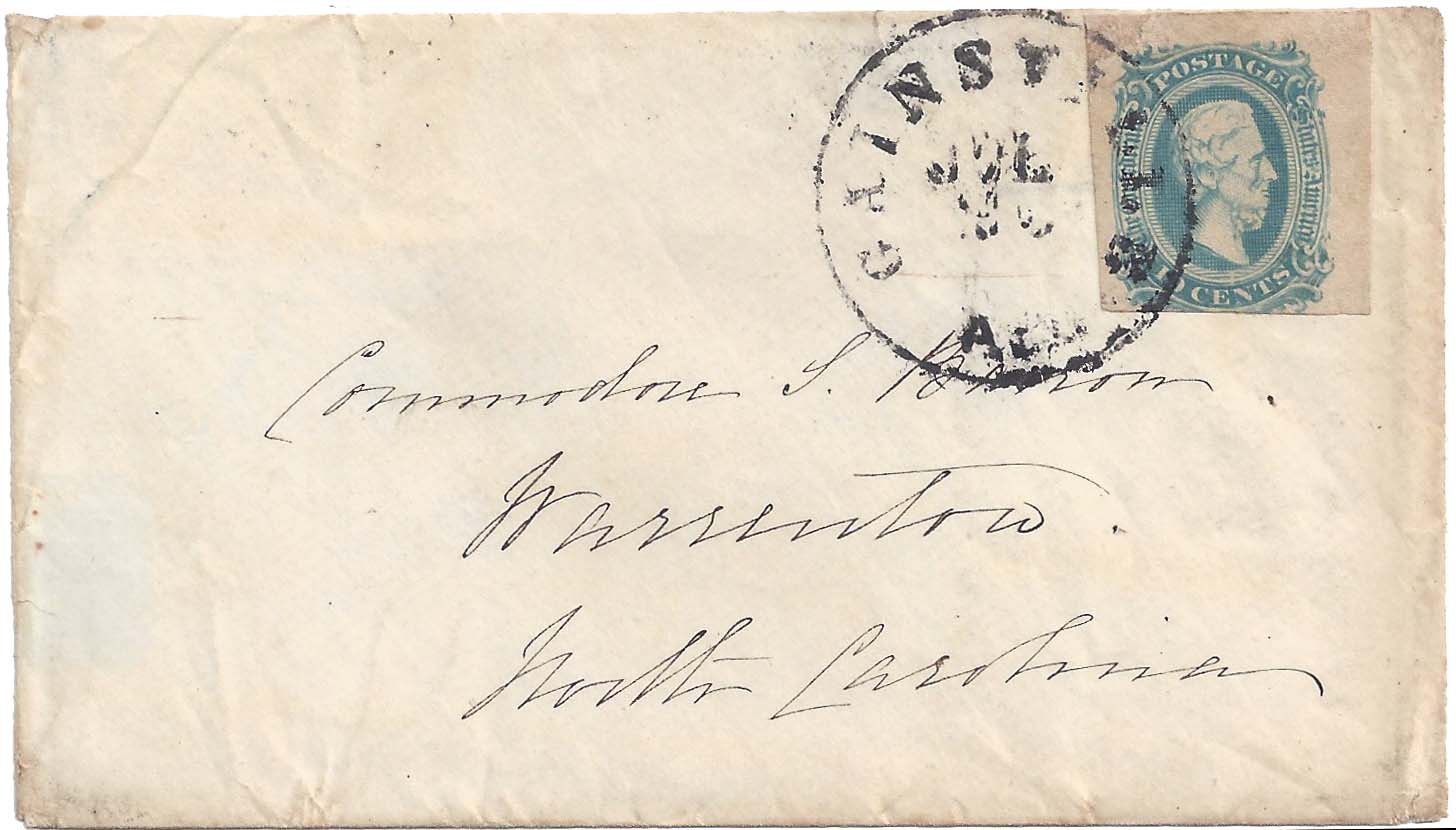 GAINSVILLE
JUL
ALA
POSTAGE
The Confederate States America
10 CENTS
Commodore S. Barron
Warrenton.
North Carolina